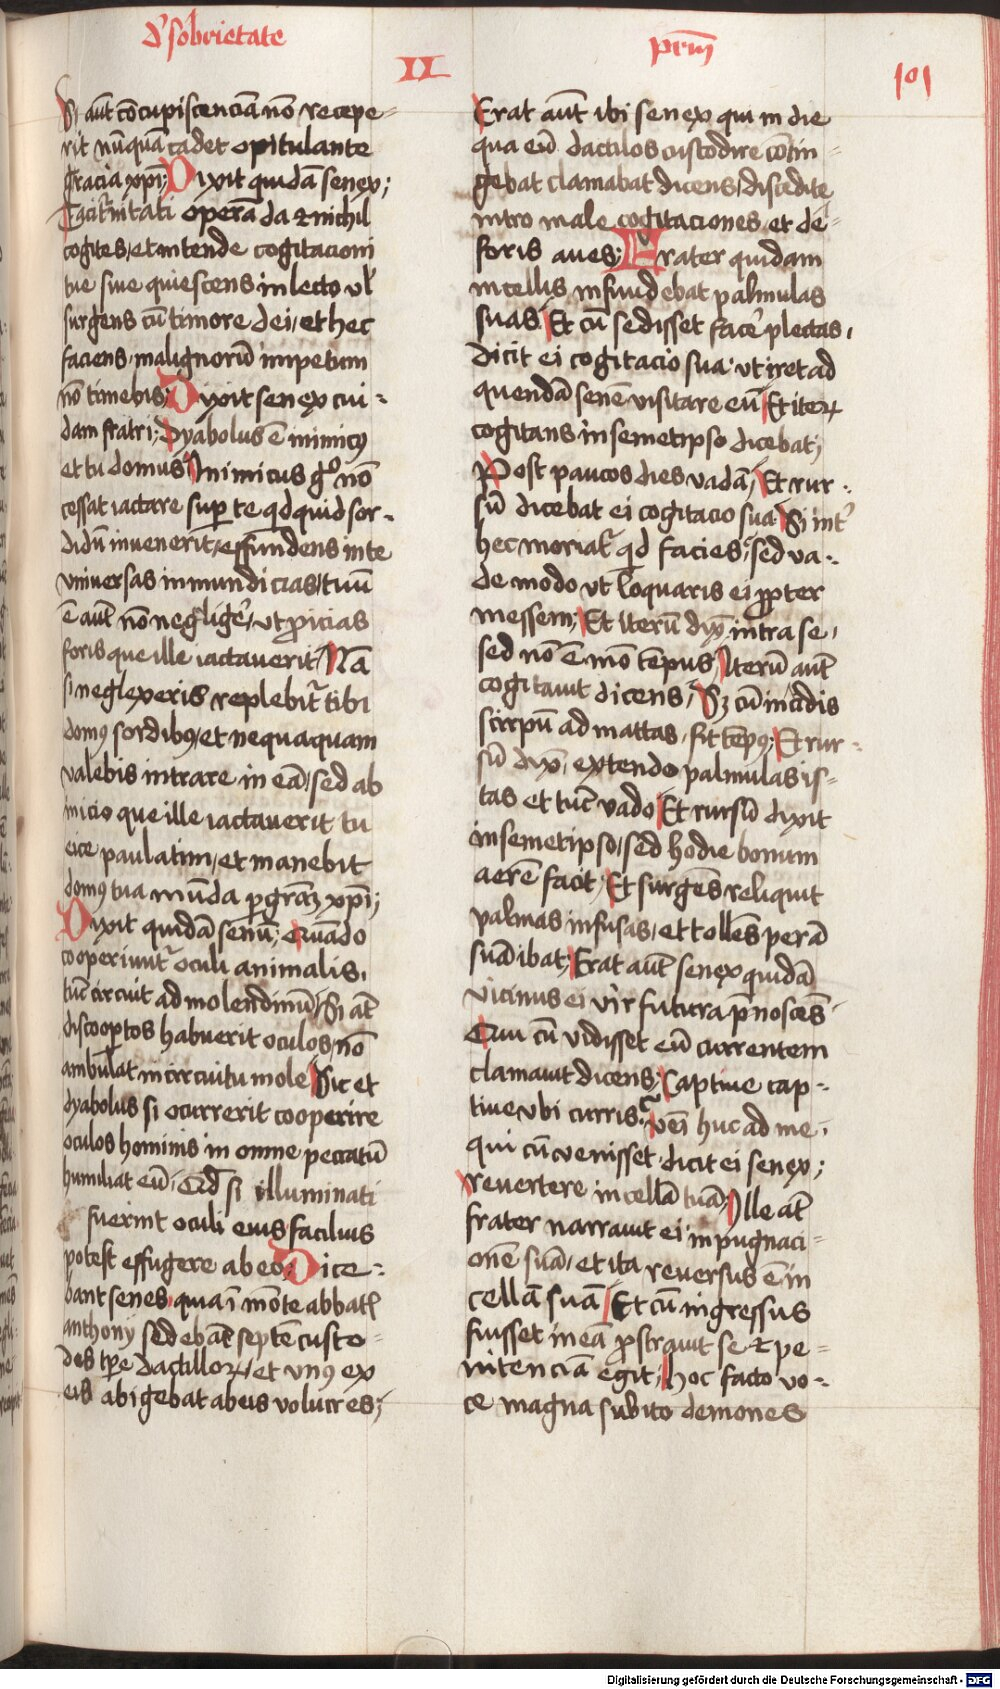 d' sobrietate
II
prm̄
101
Si aūt cōcupiscenciā nō recepe-
rit nūquā cadet opitulante
gracia xp̄i; Dixit quidā senex;
Taciturnitati operā da et nichil
cogites, et intende cogitacioni
tue siue quiescens in lecto vl'
surgens cū timore dei, et hec
faciens, malignorū impetum
nō timebis; Dixit senex cui-
dam fratri; Dyabolus ē inimicus
et tu domus Inimicus g° nō
cessat iactare super te qd quid sor-
didū inuenerit, effundens in te
vniuersas inmundicias, tuū
ē aūt nō neglige', ut proicias
foris que ille iactauerit, Nā
si neglexeris replebit' tibi
domus sordibus, et nequaquam
valebis intrare in eā, sed ab
inicio que ille iactauerit tu
eice paulatim, et manebit
domus tua mūda per grām xp̄i;
Dixit quidā senū; Quādo
cooperiunt' oculi animalis,
tūc circuit ad molendinū, Si āt
discoopertos habuerit oculos, nō
ambulat in circuitu mole Sic et
dyabolus si ocurrerit cooperire
oculos hominis in omne peccatū
humiliat eū, Qd si illuminati
fuerint oculi eius facilius
potest effugere ab eo; Dice-
bant senes, quia ī mōte abbatis
anthonij sedebāt septē custo-
des tpe dactillorum, et vnus ex
eis abigebat ab eis volucres;
Erat aūt ibi senex qui in die
qua eū dactilos custodire cōtin-
gebat clamabat dicens, discedite
intro male cogitaciones et de-
foris aues; Frater quidam
in cellis infundebat palmulas
suas, Et cū sedisset face' plectas,
dicit ei cogitacio sua ut iret ad
quendā senē visitare eū, Et iterum
cogitans in semetipso dicebat;
Post paucos dies vadā, Et rur-
sū dicebat ei cogitacio sua Si int'
hec moriat' qd facies, sed va-
de modo ut loquaris ei propter
messem; Et iterū dix̄ intra se,
sed nō ē mō tempus, Iterū aūt
cogitauit dicens, Sz cū incidis
scirpū ad mattas, fit tempus, Et rur-
sū dix̄, extendo palmulas is-
tas et tūc vado Et rursū dixit
in semetipso, sed hodie bonum
aerē facit, Et surgēs reliquit
palmas infusas, et tollēs perā
suā ibat; Erat aūt senex quidā
vicinus ei vir futura p̄noscēs
Qui cū vidisset eū currentem
clamauit dicens; Captiue cap-
tiue vbi curris? veni huc ad me,
qui cū venisset dicit ei senex;
reuertere in cellā tuā, Ille āt
frater narrauit ei inpugnaci-
onē suā, et ita reuersus ē in
cellā suā, Et cū ingressus
fuisset in eā prostrauit se et pe-
nitenciā egit, hoc facto vo-
ce magna subito demones
Digitalisierung gefördert durch die Deutsche Forschungsgemeinschaft - DFG